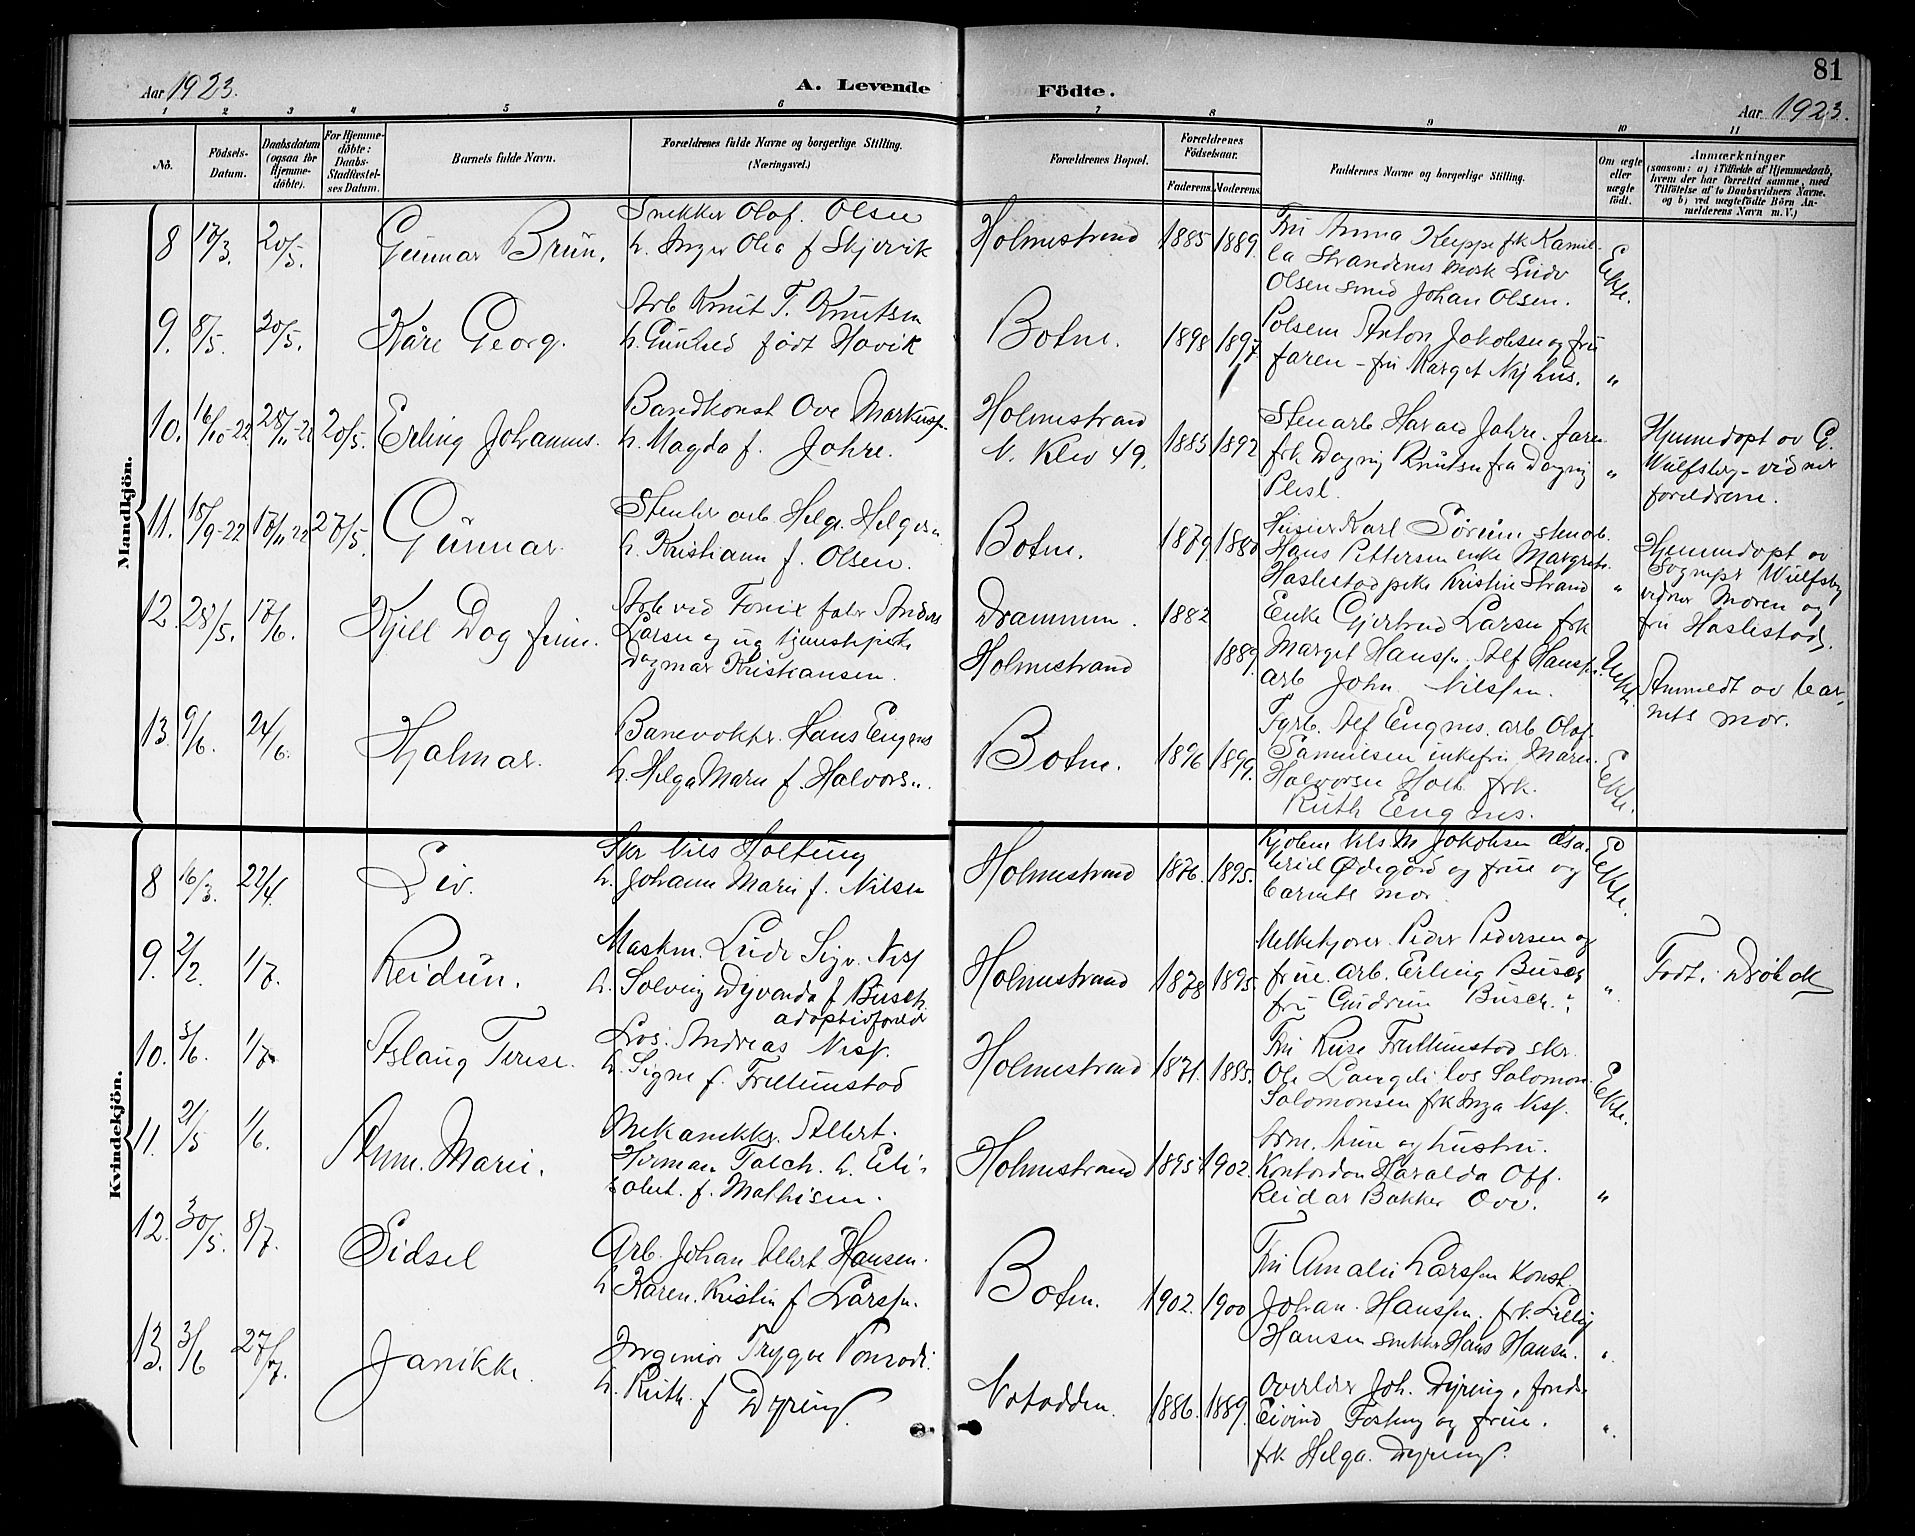 81
Aar 1923.
A. Levende
Födte.
Aar 1923.
1 2 3 4 5 6 7 8 9 10 11
No.
Födsels-
Datum.
Daabsdatum
(ogsaa for
Hjemme-
døbte).
For Hjemme-
döbte:
Daabs-
Stadfæstel-
ses Datum.
Barnets fulde Navn.
Forældrenes fulde Navne og borgerlige Stilling.
(Næringsvei.)
Forældrenes Bopæl.
Forældrenes
Födselsaar.
Faderens.
Moderens.
Faddernes Navne og borgerlige Stilling.
Om ægte
eller
uægte
født.
Anmærkninger
(saasom: a) i Tilfælde af Hjemmedaab,
hvem der har forrettet samme, med
Tilföielse af to Daabsvidners Navne.
og b) ved uægtefödte Börn An-
melderens Navn m. V.)
Mandkjön.
8 17/3. 20/5. Gunnar Brun.
Snekker Olaf. Olsen
h. Inger Olea f Skjervik
Holmestrand 1885 1889.
Fru Anna Keppe frk Kamil-
la Strandenes mask Ludv
Olsen smed Johan Olsen.
Ekte.
9. 8/5. 20/5. Kåre Georg.
Arb Knut T. Knutsen
h. Gunhild født Hovik
Botne. 1898 1897
Polsem Anton Jakobsen og fru
faren - fru Marget Nyhus. "
10. 16/10-22 28/11-22 20/5. Erling Johannes.
Bandkonst Ove Markuss.
h. Magda f. Jahre.
Holmestrand
N. Klev 49. 1885 1892
Stenarb Harald Jahre. faren
frk Dagny Knutsen fra Dagny
Plesl. "
Hjemmedøpt av G.
Wulfsberg - vidner
foreldrene.
11. 15/9-22 17/11-22 27/5. Gunnar
Stenhr arb Helge Helgesen
h. Kristiann f. Olsen.
Botne. 1879. 1880
Husier Karl Sörum stenarb.
Hans Pettersen enke Margrete
Haslestad pike Kristine Strand "
Hjemmedøpt av
Sognepr Wulfsberg
vidner Moren og
fru Haslestad.
12. 28/5. 17/6. Kjell Dag Finn.
Arb ved Fonix fabr Anders
Larsen og ug tjenestepike
Dagmar Kristiansen.
Drammen. 1882
Holmestrand 1889.
Enke Gjertrud Larsen frk
Marget Hanssn. Alf Hanssn.
arb John Nilssen.
Uekte.
Anmeldt av bar-
nets mor.
13. 9/6. 24/6. Hjalmar.
Banevokter. Hans Engens
h. Helga Marie f. Halvorsn.
Botne. 1896 1899.
Fyrb. Alf Engnes. arb Olaf
Samuelsen enkefru Maren
Halvorsen Holt. frk.
Ruth Engnes.
Ekte.
Kvindekjön.
8 16/3. 22/4. Liv.
Skr Nils Holtung
h. Johann Marie f. Nilsen
Holmestrand 1876. 1895.
Kjøbm Nils M Jakobsen
Ødegård og frue og
barnets mor.
Ekte.
9. 2/2. 1/7. Reidun.
Maskm. Ludv Sigv. Niss
h. Solveig Dyvenda f Busch
adoptivforeldr
Holmestrand 1878 1895.
Melkekjører. Peder Pedersen og
frue. arb. Erling Busch
fru Gudrun Busch. "
Født. Drøbak
10. 3/6. 1/7. Aslaug Terese.
Los. Andreas Niss.
h. Signe f. Frellumstad
Holmestrand 1871. 1885.
Fru Kuse Frellumstad skr.
Ole Langeli los Salomon
Salomonsen frk Inga Niss.
Ekte.
11. 21/5 1/6. Anne. Marie.
Mekanikker. Albert.
Herman Falch. h. Eli-
sabet. f. Mathisen.
Holmestrand 1895 1902.
Arne. Lunn og hustru.
Kontordm Haralda Off.
Reidar Bakker Ove. "
12. 30/5. 8/7. Sidsel
Arb. Johan Albert Hansen.
h Karen. Kristin f Larssn.
Botne. 1902. 1900
Fru Amalie Larssen Konst.
Johan. Hanssen. frk. Lilly
Hansen snekker Hans Hansen. "
13. 3/6 27/7. Janikke.
Ingeniør Trygve Ponradi.
h. Ruth. f Dyring.
Notodden. 1886. 1889.
Overlær Joh. Dyring.
Eivind Fosteng og frue.
frk Helga. Dyring. "